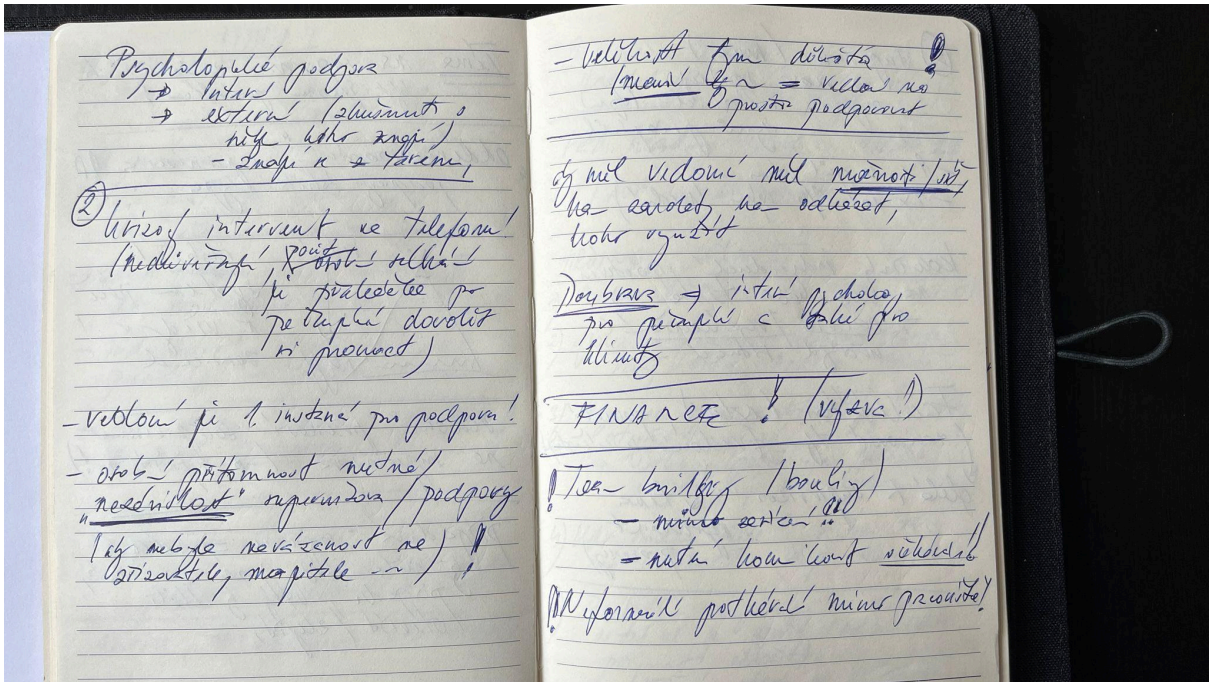 Psychologické podpora
→ interní
→ externí (zkušenosti s
někým, koho znají)
– znají se s terénem,
② krizový intervent na telefonu!
(nedůvěřují, pocit selhání
je překážka pro
pečující dovolit
si pomoct)
– vedoucí je 1. instancí pro podporu!
– osobní přítomnost nutné/
"nezávislost" supervizora / podpory
(aby nebyla navázanost na
zřizovatele, majitele ~) !
– velikost tým důležitá !
(menší tým ~ = vedoucí má
prostor podporovat
aby měl vedoucí měl možnosti / síť,
kam zavolat, kam odkázat,
koho využít
Doubrava ⇒ interní psycholog
pro pečující a také pro
klienty
FINANCE ! (výzva!)
! Team building (bowling)
– mimo zařízení !!
– nutné komunikovat očekávání!
! Neformální potkávání mimo pracoviště!